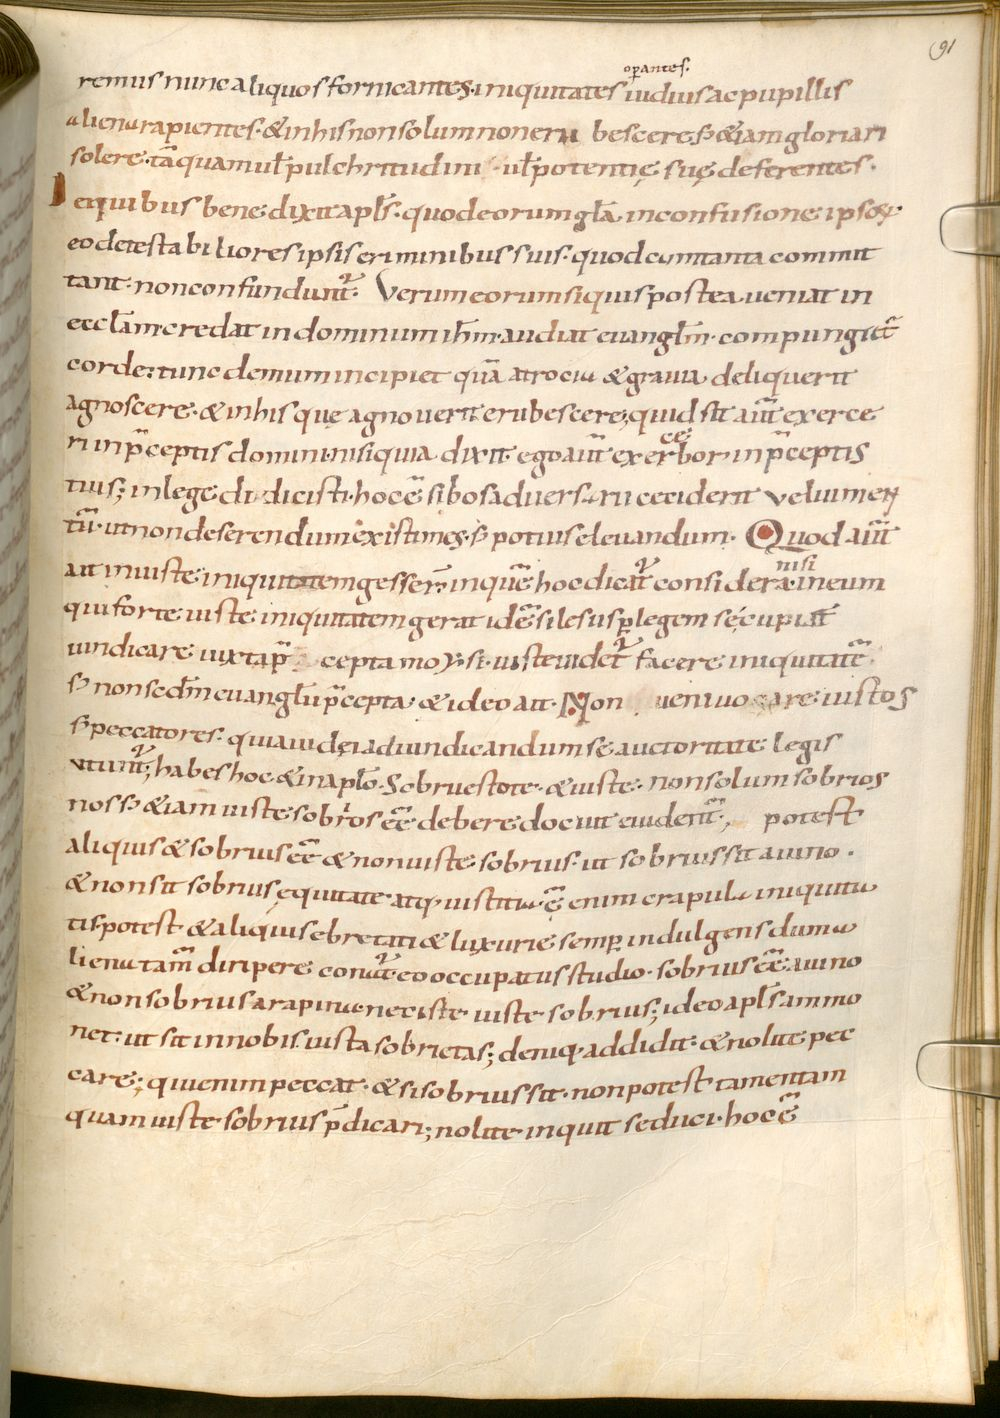 91
operantes.
remus nunc aliquos fornicantes. iniquitates uiduis ac pupillis
aliena rapientes. & inhis non solum non eru bescere. s; & iam gloriari
solere. tā quam uł pulchritudini. uł potentię suę deferentes.
De quibus bene dixit apłs. quod eorum gła in confusione ipsoꝝ
eo detestabiliores ipsis criminibus suis. quod cum tanta commit
tant. non confundunt᷑. Verum eorum si quis postea ueniat in
ecclam. credat in dominum ihm. audiat euanglm. compungiat᷑
corde: tunc demum incipiet quā atrocia & grauia deliquerit
agnoscere. & inhis quę agnouerit erubescere; quid sit aut̄ exerce
ri in p̄ceptis domini. nisi quia dixit. ego aut̄ exercebor in p̄ceptis
tuis; in lege di dicisti. hoc ē. si bos aduersarii ceciderit uel iumen
tū. ut non deserendum existimes. s; potius eleuandum. Quod aut̄
ait iniuste iniquitatem gesser̄. in quē hoc dicat᷑ considera. nisi in eum
qui forte iuste iniquitatem gerat. idē si lesus ꝑ legem se cupiat
uindicare iuxta p̄ cepta moysi. iuste uidet᷑ facere iniquitatē.
s; non secdm euanglii p̄cepta. & ideo ait. Non ueni uocare iustos
s; peccatores. quia iudęi ad uindicandum se auctoritate legis
utunt᷑; habes hoc & in apło. Sobrii estote. & iuste. non solum sobrios
nos s; & iam iuste sobrios eē debere docuit euidenter; potest
aliquis & sobrius eē & non iuste sobrius. ut sobrius sit a uino.
& non sit sobrius ęquitate atq; iustitia. ē enim crapula iniquita
tis. potest & aliquis ebrietati & luxurie semꝑ indulgens dum a
liena tam̄ diripere conat᷑. eo occupatus studio. sobrius eē a uino
& non sobrius a rapina. nec iste iuste sobrius; ideo apłs ammo
net. ut sit in nobis iusta sobrietas; deniq; addidit. & nolite pec
care; qui enim peccat. & si sobrius sit. non potest tamen tam
quam iuste sobrius p̄dicari; nolite inquit seduci. hoc ē